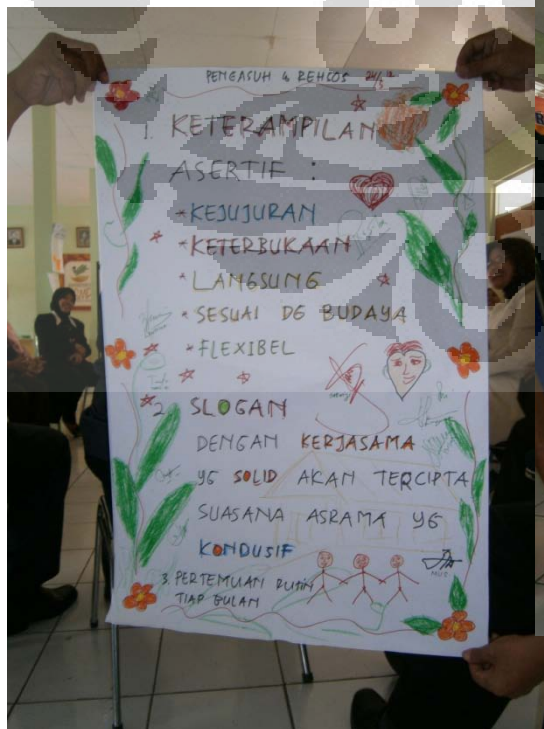 PENGASUH & REHSOS
1. KETERAMPILAN
ASERTIF :
* KEJUJURAN
* KETERBUKAAN
* LANGSUNG
* SESUAI DG BUDAYA
* FLEXIBEL
2. SLOGAN
DENGAN KERJASAMA
YG SOLID AKAN TERCIPTA
SUASANA ASRAMA YG
KONDUSIF
3. PERTEMUAN RUTIN
TIAP BULAN